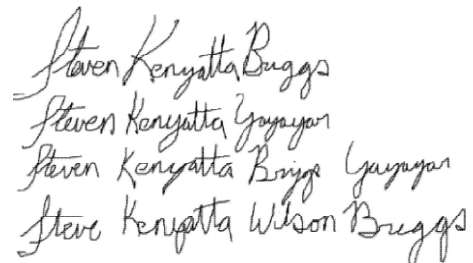 Steven Kenyatta Briggs
Steven Kenyatta Yayayar
Steven Kenyatta Briggs Yayayar
Steve Kenyatta Wilson Briggs